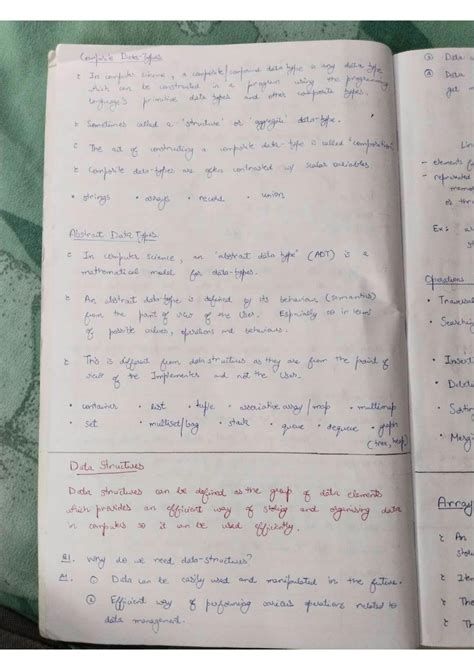 Composite Data-Types
In computer science, a composite/compound data type is any data type
which can be constructed in a program using the programming
language's primitive data types and other composite types.
Sometimes called a 'structure' or 'aggregate' data-type.
The act of constructing a composite data-type is called 'composition'
Composite data-types are often contrasted w/ scalar variables
• strings • arrays • record • union
Abstract Data Types
In computer science, an 'abstract data type' (ADT) is a
mathematical model for data-types.
An abstract data-type is defined by its behaviour (semantics)
from the point of view of the User. Especially in terms
of possible values, operations and behaviours.
This is different from data structures as they are from the point of
view of the Implementer and not the User.
• container • list • tuple • associative array/map • multimap
• set • multiset/bag • stack • queue • dequeue • graph
(tree, heap)
Data Structures
Data structures can be defined as the group of data elements
which provides an efficient way of storing and organising data
in computer so it can be used efficiently.
Q1. Why do we need data-structures?
A1. ① Data can be easily used and manipulated in the future.
② Efficient way of performing various operations related to
data management.
③ Data
④ Data
get
Lin
- elements
- represented
memor
or thro
Ex:
Operations
• Travers
• Searching
• Inserti
• Deleti
• Sorting
• Mergin
Array
An
stor
Th